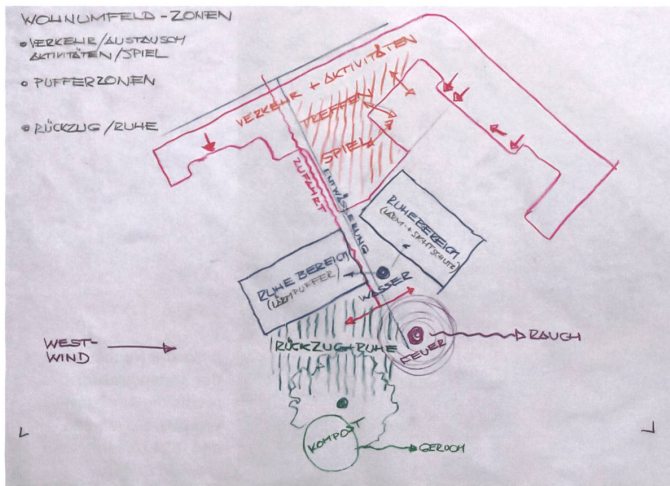 WOHNUMFELD-ZONEN
• VERKEHR/AUSTAUSCH
AKTIVITÄTEN/SPIEL
• PUFFERZONEN
• RÜCKZUG/RUHE
VERKEHR + AKTIVITÄTEN
TREFFEN
SPIEL
ZUFAHRT
ENTWÄSSERUNG
RUHEBEREICH
(LÄRM- + SICHTSCHUTZ)
RUHE BEREICH
(LÄRMPUFFER)
WASSER
WEST-
WIND
RÜCKZUG + RUHE
FEUER
RAUCH
KOMPOST
GERUCH